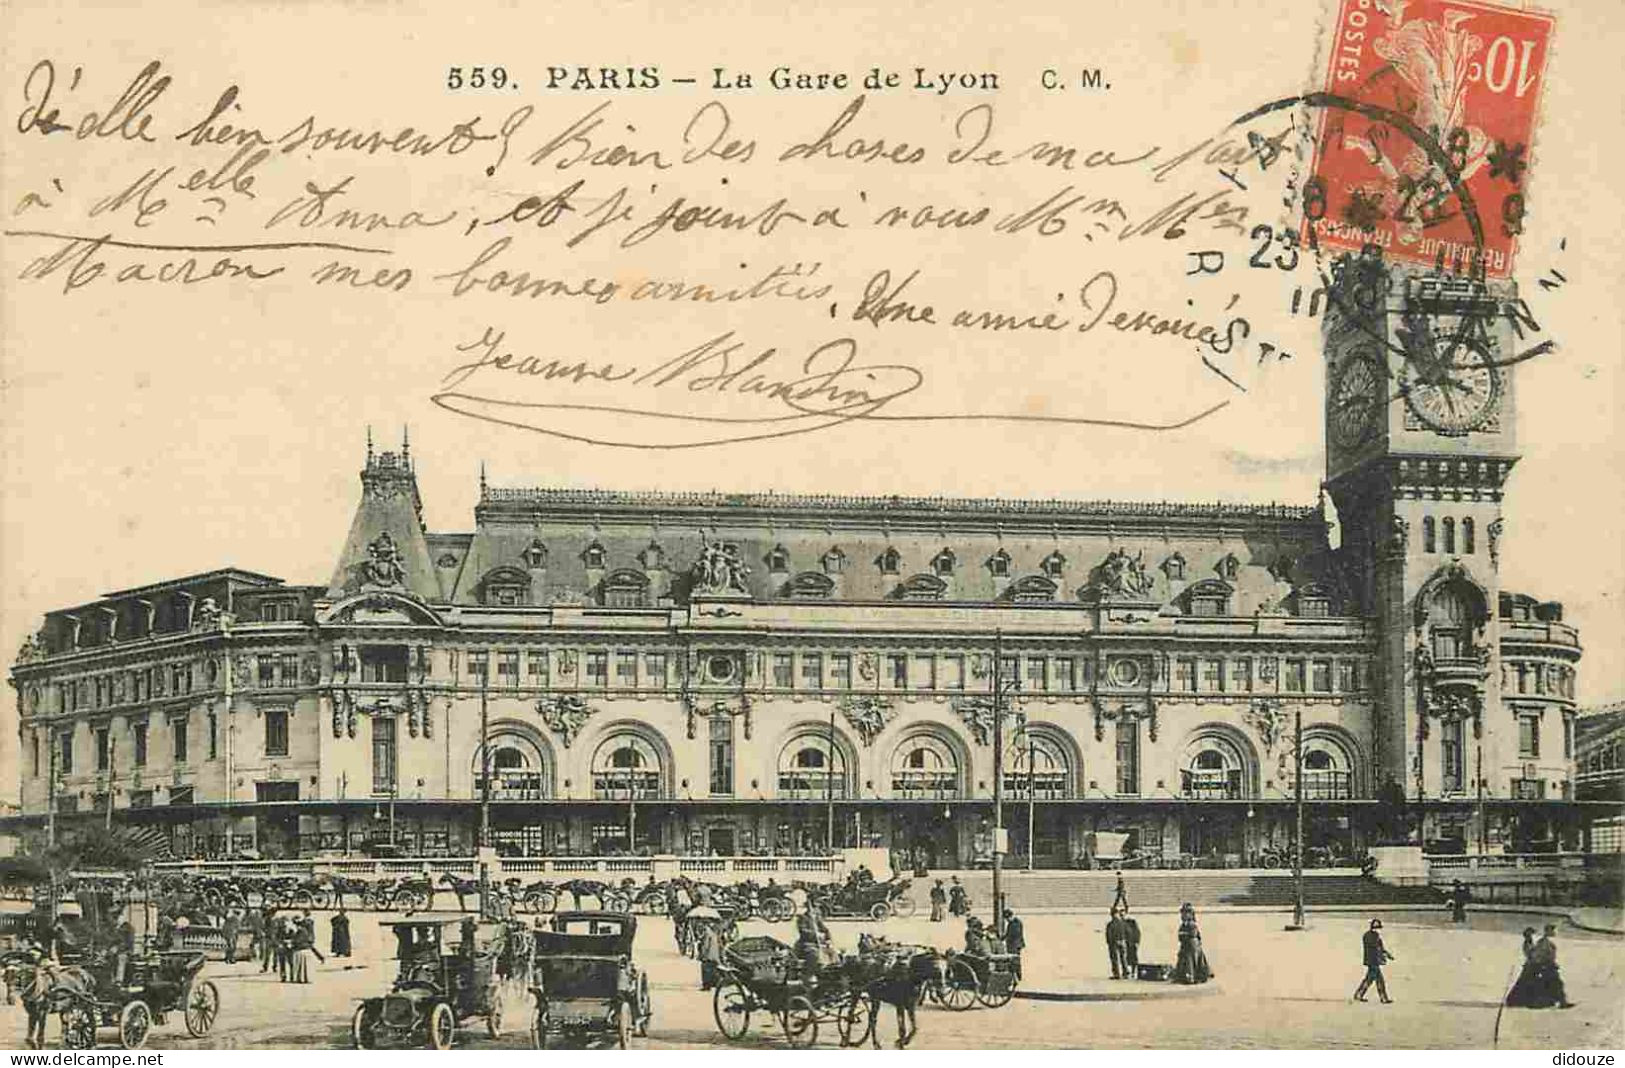 559. PARIS — La Gare de Lyon C. M.
d'elle bien souvent. Bien des choses de ma part
à Melle Anna, et je joint à vous Mm Mer
Macron mes bonnes amitiés. Une amie dévouée
Jeanne Blandin
POSTES
10c
REPUBLIQUE FRANÇAISE
18 *
8 * 23
23
didouze